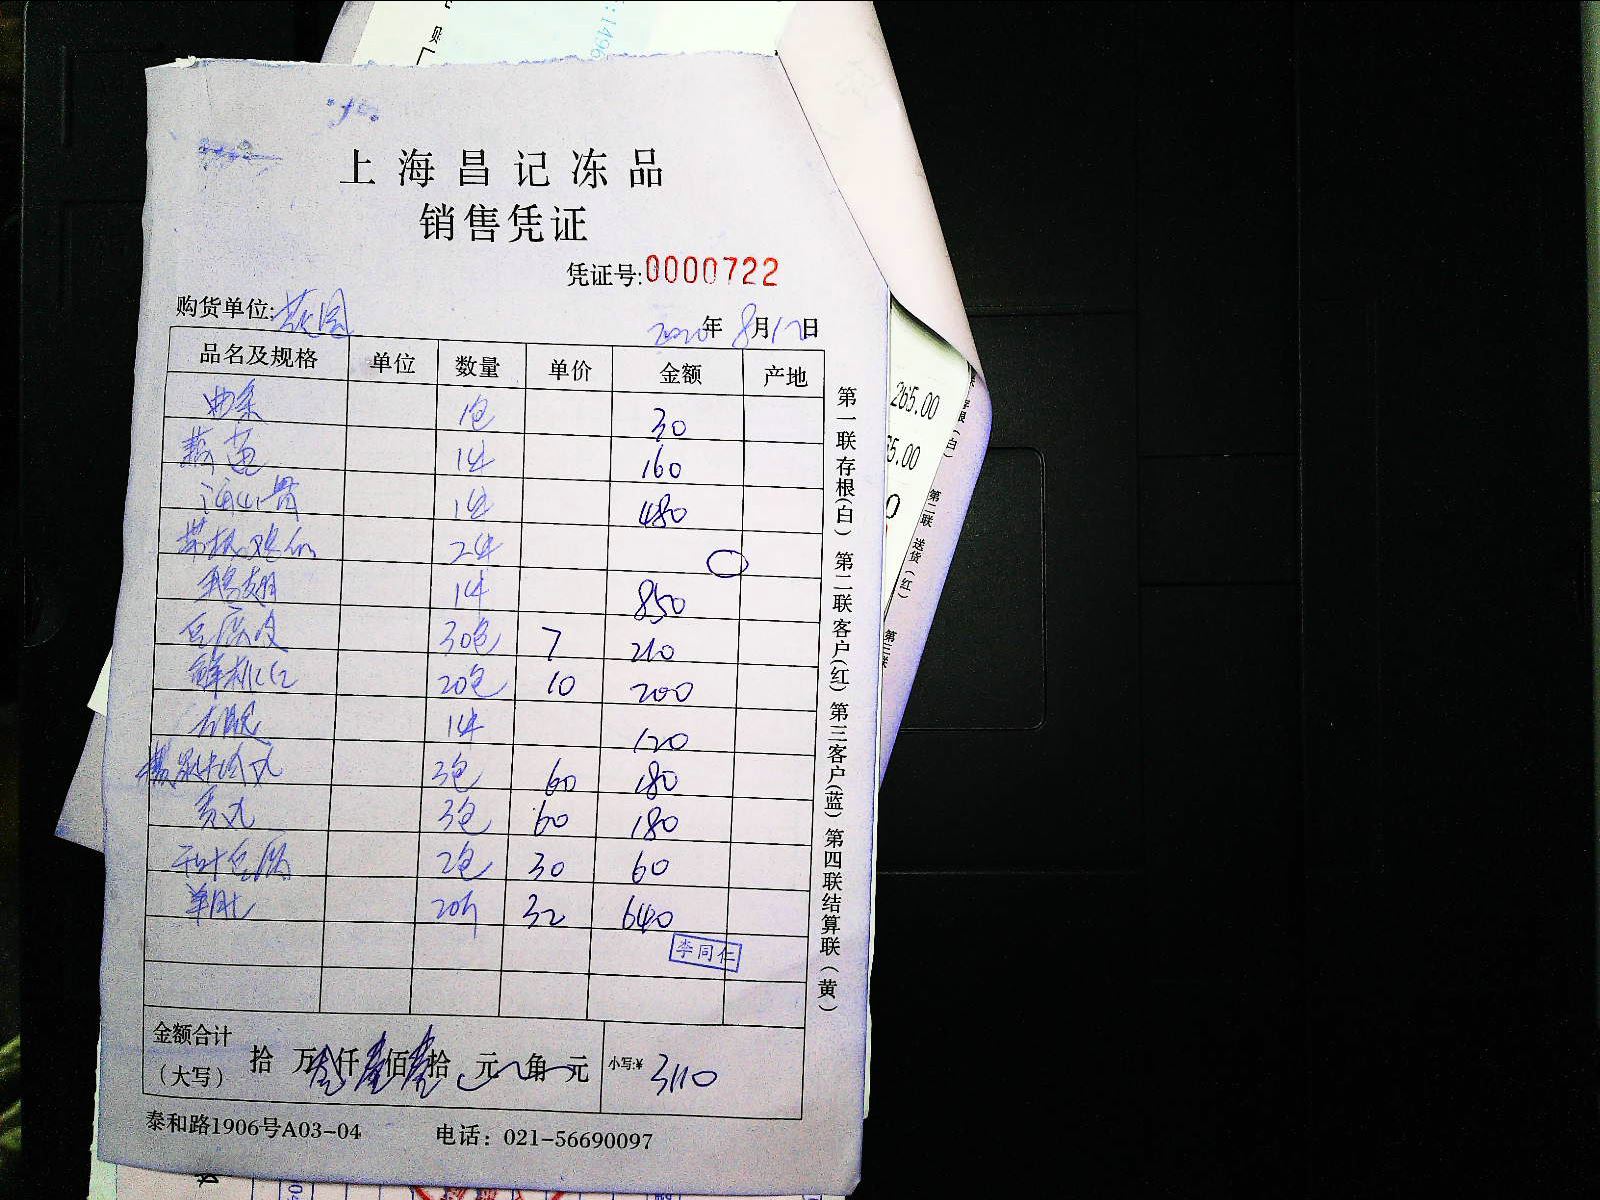 上海昌记冻品
销售凭证
凭证号:0000722
购货单位:花园
2020年8月12日
品名及规格 单位 数量 单价 金额 产地
1包 30
1件 160
1件 480
2件
鸭翅 1件 850
豆腐皮 30包 7 210
鲜桃仁 20包 10 200
1件 120
3包 60 180
贡丸 3包 60 180
千叶豆腐 2包 30 60
羊肚 20斤 32 640
李同仁
金额合计
(大写) 拾 万叁仟壹佰壹拾 元 角 元 小写:¥ 3110
泰和路1906号A03-04 电话：021-56690097
第一联存根(白) 第二联客户(红) 第三客户(蓝) 第四联结算联(黄)
265.00
65.00
0
第二联 送货(红)
第三联